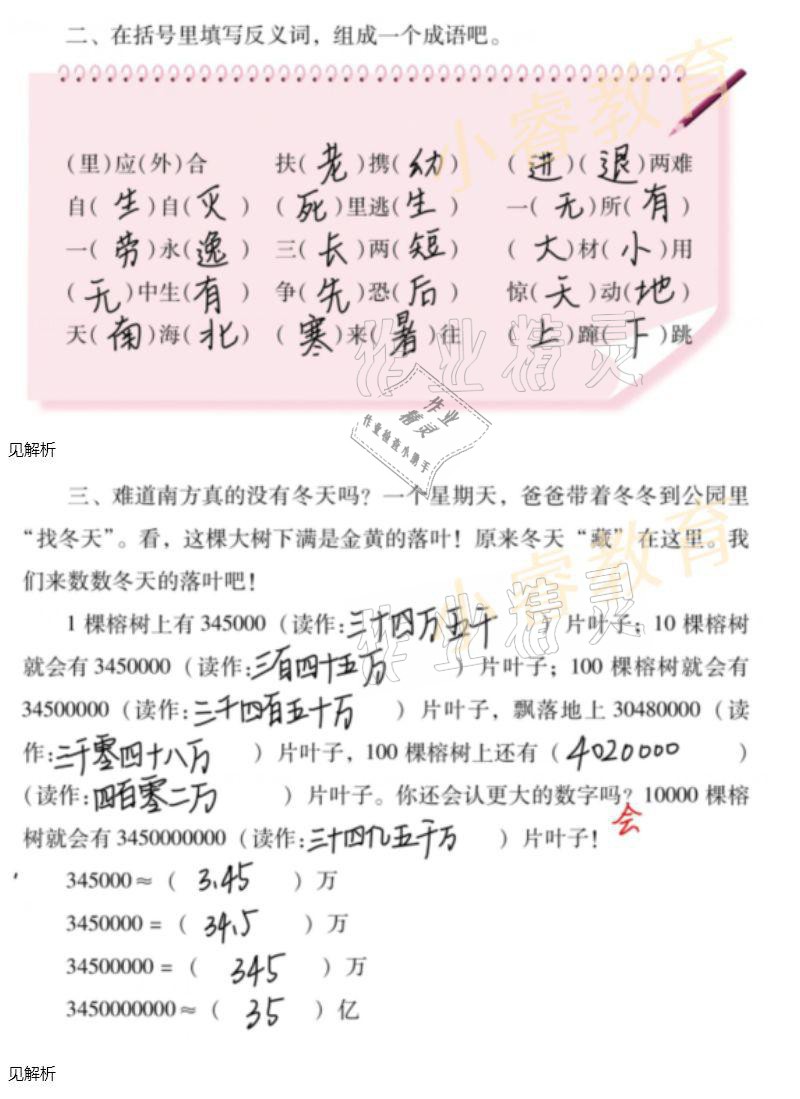 二、在括号里填写反义词，组成一个成语吧。
(里)应(外)合 扶(老)携(幼) (进)(退)两难
自(生)自(灭) (死)里逃(生) 一(无)所(有)
一(劳)永(逸) 三(长)两(短) (大)材(小)用
(无)中生(有) 争(先)恐(后) 惊(天)动(地)
天(南)海(北) (寒)来(暑)往 (上)蹿(下)跳
小睿教育
作业精灵
作业
精灵
作业检查小助手
见解析
三、难道南方真的没有冬天吗？一个星期天，爸爸带着冬冬到公园里
“找冬天”。看，这棵大树下满是金黄的落叶！原来冬天“藏”在这里。我
们来数数冬天的落叶吧！
1 棵榕树上有 345000（读作:三十四万五千）片叶子；10 棵榕树
就会有 3450000（读作:三百四十五万）片叶子；100 棵榕树就会有
34500000（读作:三千四百五十万）片叶子，飘落地上 30480000（读
作:三千零四十八万）片叶子，100 棵榕树上还有（4020000）
(读作:四百零二万）片叶子。你还会认更大的数字吗？10000 棵榕
会
树就会有 3450000000（读作:三十四亿五千万）片叶子！
345000≈（3.45）万
3450000 =（34.5）万
34500000 =（345）万
3450000000≈（35）亿
小睿教育
作业精灵
见解析